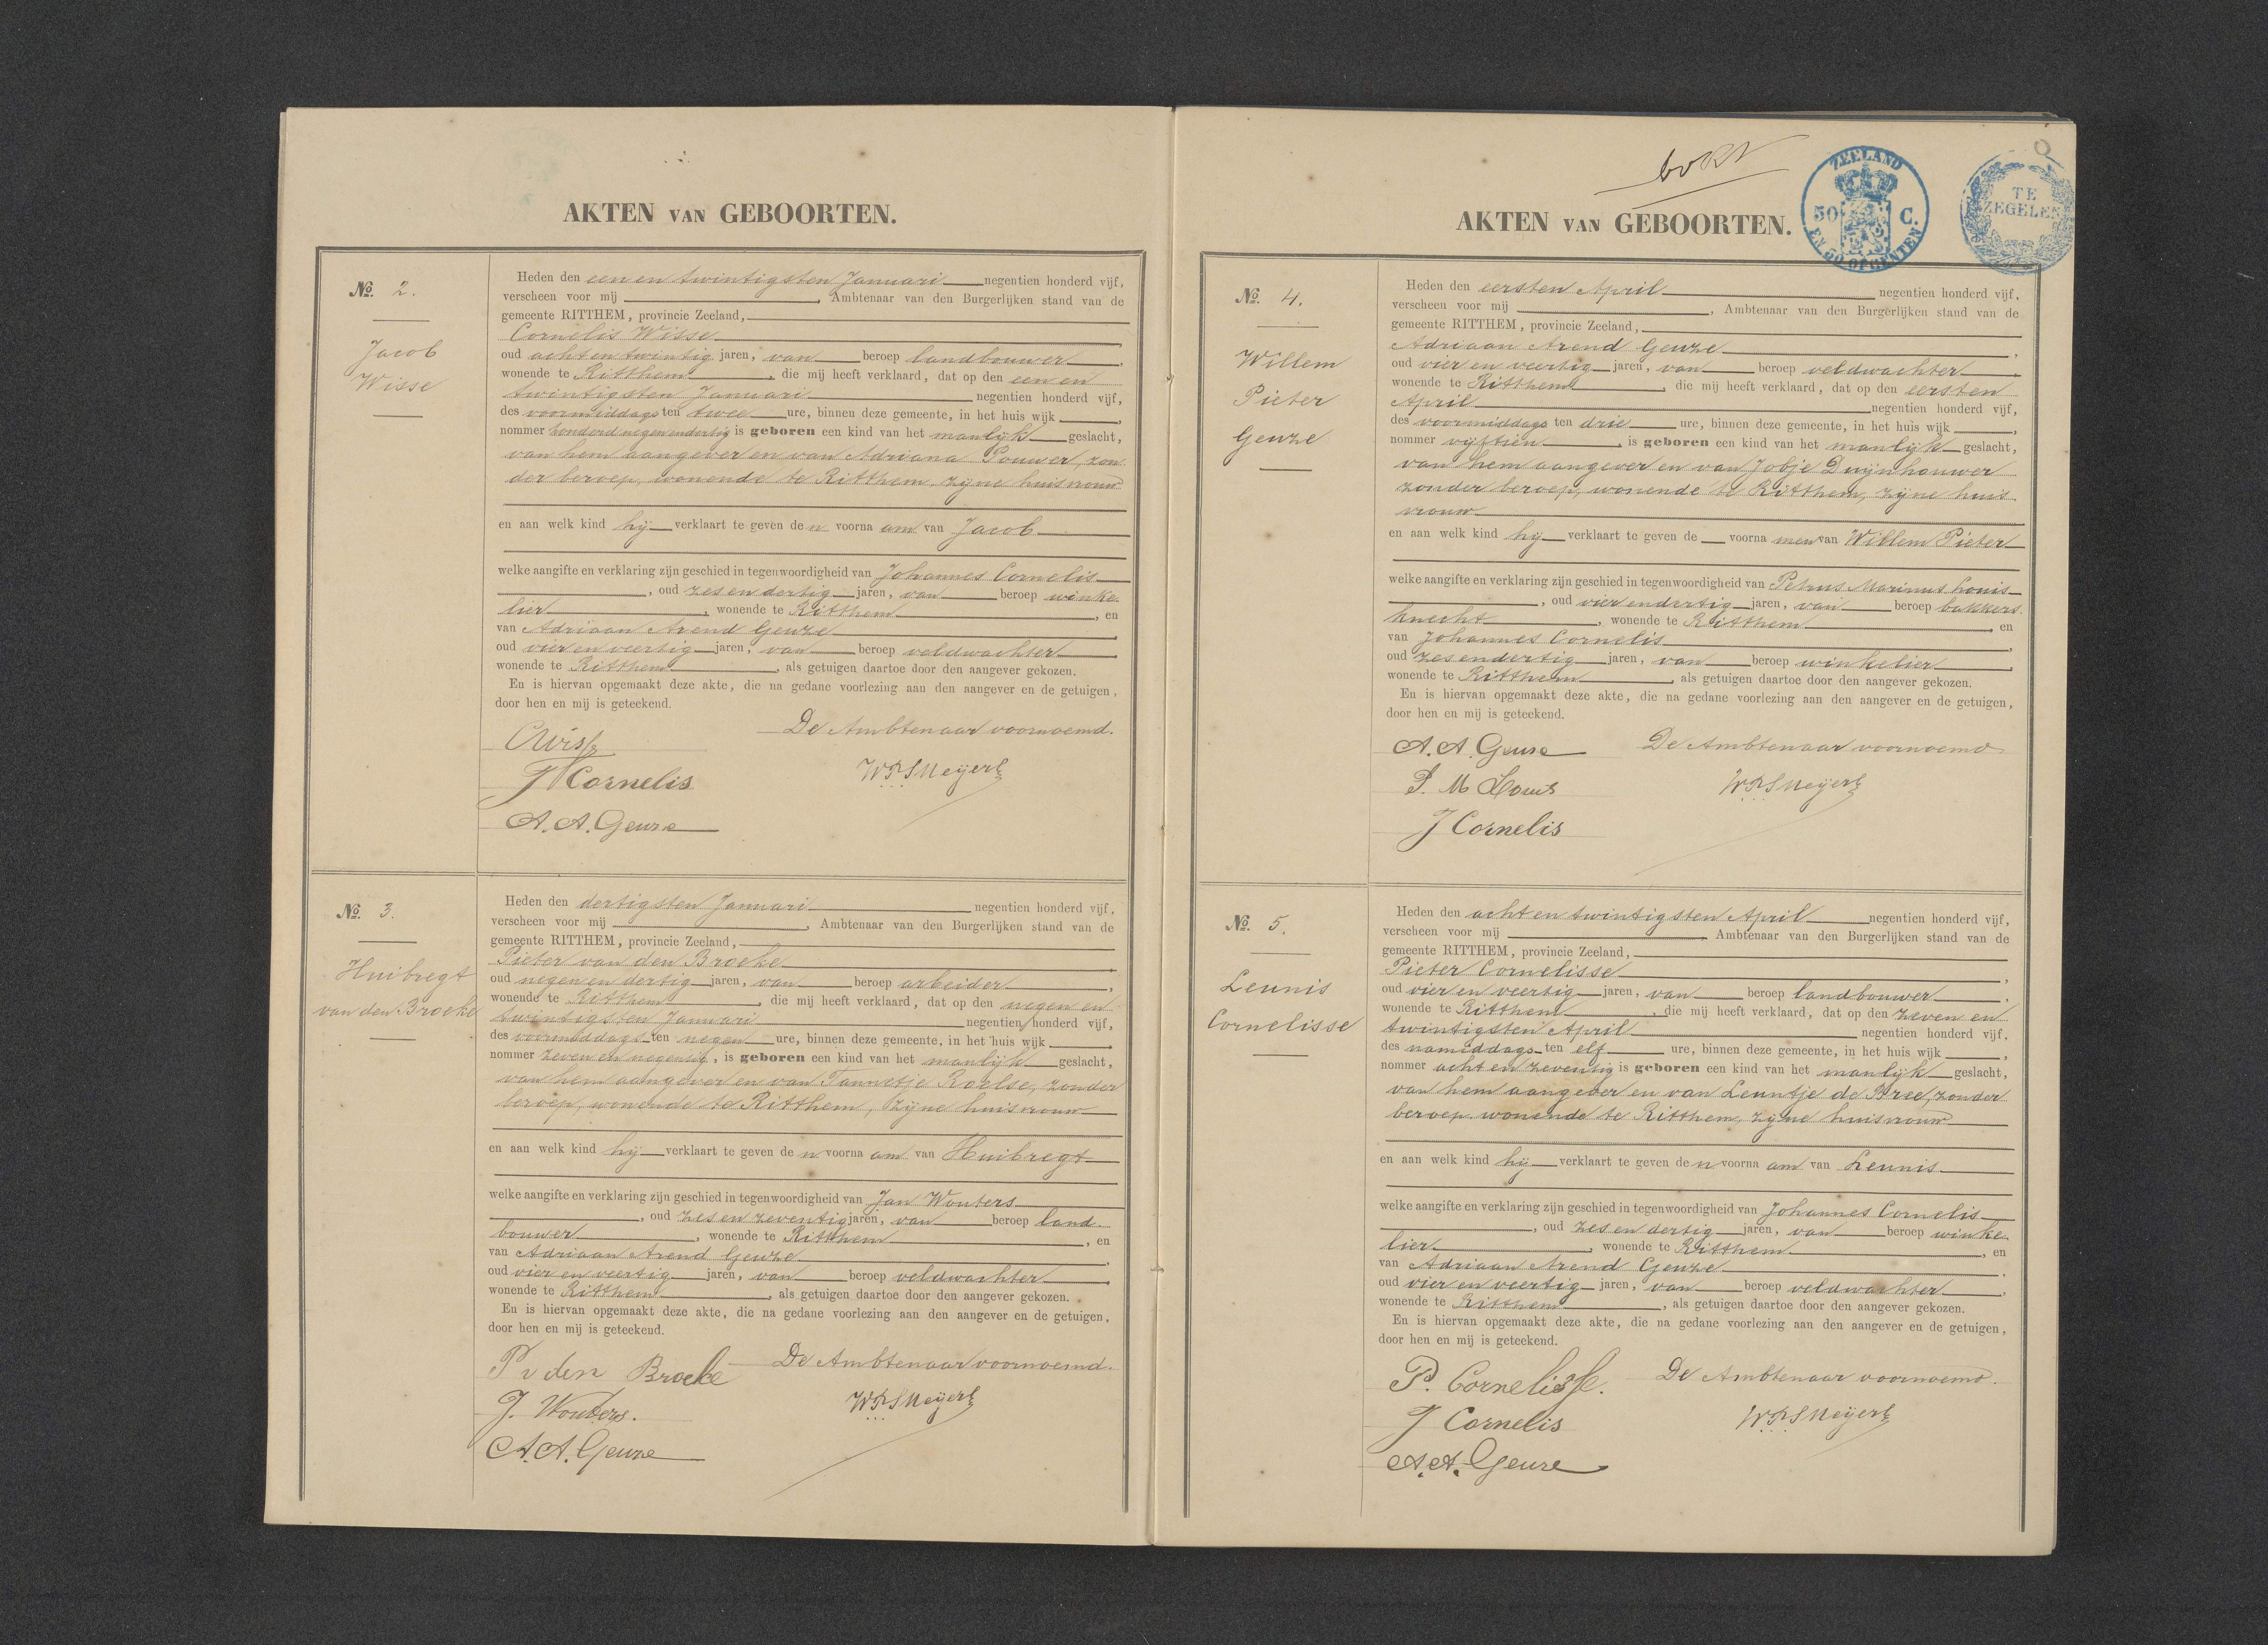 AKTEN VAN GEBOORTEN.
No. 2.
Jacob
Wisse
Heden den een en twintigsten Januari negentien honderd vijf,
verscheen voor mij , Ambtenaar van den Burgerlijken stand van de
gemeente RITTHEM, provincie Zeeland,
Cornelis Wisse ,
oud acht en twintig jaren, van beroep landbouwer ,
wonende te Ritthem , die mij heeft verklaard, dat op den een en
twintigsten Januari negentien honderd vijf,
des voormiddags ten twee ure, binnen deze gemeente, in het huis wijk ,
nommer honderd negen en dertig is geboren een kind van het manlijk geslacht,
van hem aangever en van Adriana Pouwer, zon
der beroep, wonende te Ritthem, zijne huisvrouw
en aan welk kind hij verklaart te geven den voornaam van Jacob
welke aangifte en verklaring zijn geschied in tegenwoordigheid van Johannes Cornelis
, oud zes en dertig jaren, van beroep winke
lier , wonende te Ritthem , en
van Adriaan Arend Geuze ,
oud vier en veertig jaren, van beroep veldwachter ,
wonende te Ritthem , als getuigen daartoe door den aangever gekozen.
En is hiervan opgemaakt deze akte, die na gedane voorlezing aan den aangever en de getuigen,
door hen en mij is geteekend.
De Ambtenaar voornoemd.
CWisse
J Cornelis
WPSMeijers
A. A. Geuze
No. 3.
Huibregt
van den Broeke
Heden den dertigsten Januari negentien honderd vijf,
verscheen voor mij , Ambtenaar van den Burgerlijken stand van de
gemeente RITTHEM, provincie Zeeland,
Pieter van den Broeke ,
oud negen en dertig jaren, van beroep arbeider ,
wonende te Ritthem , die mij heeft verklaard, dat op den negen en
twintigsten Januari negentien honderd vijf,
des voormiddags ten negen ure, binnen deze gemeente, in het huis wijk ,
nommer zeven en negentig, is geboren een kind van het manlijk geslacht,
van hem aangever en van Tannetje Roelse, zonder
beroep, wonende te Ritthem, zijne huisvrouw
en aan welk kind hij verklaart te geven den voornaam van Huibregt
welke aangifte en verklaring zijn geschied in tegenwoordigheid van Jan Wouters
, oud zes en zeventig jaren, van beroep land
bouwer , wonende te Ritthem , en
van Adriaan Arend Geuze ,
oud vier en veertig jaren, van beroep veldwachter ,
wonende te Ritthem , als getuigen daartoe door den aangever gekozen.
En is hiervan opgemaakt deze akte, die na gedane voorlezing aan den aangever en de getuigen,
door hen en mij is geteekend.
P v den Broeke De Ambtenaar voornoemd.
J. Wouters. WPSMeijers
A. A. Geuze
ZEELAND
50 C.
EN 50 OPCENTEN
TE
ZEGELEN
AKTEN VAN GEBOORTEN.
No. 4.
Willem
Pieter
Geuze
Heden den eersten April negentien honderd vijf,
verscheen voor mij , Ambtenaar van den Burgerlijken stand van de
gemeente RITTHEM, provincie Zeeland,
Adriaan Arend Geuze ,
oud vier en veertig jaren, van beroep veldwachter ,
wonende te Ritthem , die mij heeft verklaard, dat op den eersten
April negentien honderd vijf,
des voormiddags ten drie ure, binnen deze gemeente, in het huis wijk ,
nommer vijftien , is geboren een kind van het manlijk geslacht,
van hem aangever en van Jobje Duijnhouwer
zonder beroep, wonende te Ritthem, zijne huis
vrouw
en aan welk kind hij verklaart te geven de voornamen van Willem Pieter
welke aangifte en verklaring zijn geschied in tegenwoordigheid van Petrus Marinus Louis
, oud vier en dertig jaren, van beroep bakkers
knecht , wonende te Ritthem , en
van Johannes Cornelis ,
oud zes en dertig jaren, van beroep winkelier ,
wonende te Ritthem , als getuigen daartoe door den aangever gekozen.
En is hiervan opgemaakt deze akte, die na gedane voorlezing aan den aangever en de getuigen,
door hen en mij is geteekend.
A. A. Geuze De Ambtenaar voornoemd
P. M Louis WPSMeijers
J Cornelis
No. 5.
Leunis
Cornelisse
Heden den acht en twintigsten April negentien honderd vijf,
verscheen voor mij Ambtenaar van den Burgerlijken stand van de
gemeente RITTHEM, provincie Zeeland,
Pieter Cornelisse ,
oud vier en veertig jaren, van beroep landbouwer ,
wonende te Ritthem , die mij heeft verklaard, dat op den zeven en
twintigsten April negentien honderd vijf,
des namiddags ten elf ure, binnen deze gemeente, in het huis wijk ,
nommer acht en zeventig is geboren een kind van het manlijk geslacht,
van hem aangever en van Leuntje de Bree, zonder
beroep wonende te Ritthem, zijne huisvrouw
en aan welk kind hij verklaart te geven den voornaam van Leunis
welke aangifte en verklaring zijn geschied in tegenwoordigheid van Johannes Cornelis
, oud zes en dertig jaren, van beroep winke
lier , wonende te Ritthem , en
van Adriaan Arend Geuze ,
oud vier en veertig jaren, van beroep veldwachter ,
wonende te Ritthem , als getuigen daartoe door den aangever gekozen.
En is hiervan opgemaakt deze akte, die na gedane voorlezing aan den aangever en de getuigen,
door hen en mij is geteekend.
P. Cornelisse. De Ambtenaar voornoemd.
J Cornelis WPSMeijers
A. A. Geuze